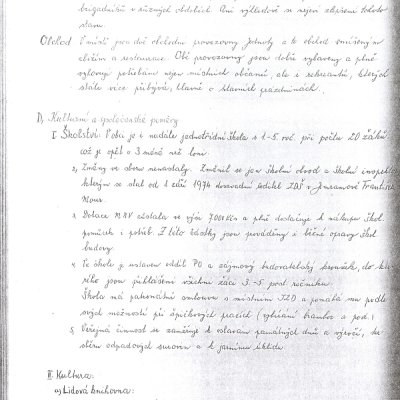 brigádníků v různých obdobích. Ani výhledově se nejeví zlepšení tohoto
stavu.
Obchod V místě jsou dvě obchodní provozovny Jednoty a to obchod smíšeným
zbožím a restaurace. Obě provozovny jsou dobře vybaveny a plně
vyhovují potřebám nejen místních občanů, ale i rekreantů, kterých
stále více přibývá, hlavně o letních prázdninách.
D, Kulturní a společenské poměry
I Školství: 1, Je i nadále jednotřídní škola s 1.-5. roč. při počtu 20 žáků
což je opět o 3 méně než loni.
2, Změny ve sboru nenastaly. Změnil se jen školní obvod a školní inspektor
kterým se stal od 1. září 1974 dosavadní ředitel ZDŠ v František
3. Dotace MNV zůstala ve výši 7.000 Kčs a plně dostačuje k nákupu škol.
pomůcek i potřeb. Z této částky jsou prováděny i běžné opravy škol.
budovy
4. Při škole je ustaven oddíl PO a zájmový budovatelský kroužek, do kte-
rého jsou přihlášeni všichni žáci 3.-5. post. ročníku.
Škola má patronátní smlouvu s místním JZD a pomáhá mu podle
svých možností při špičkových pracích (vybírání brambor a pod.)
5. Veřejná činnost se zaměřuje k oslavám památných dnů a výročí, ke
sběru odpadových surovin a k jarnímu úklidu.
II. Kultura:
a) Lidová knihovna: